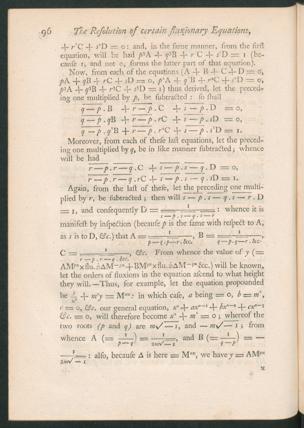 96 The Resolution of certain fluxionary Equations,
+ r²C + s²D = 0: and, in the same manner, from the first
equation, will be had p³A + q³B + r³C + s³D = 1 (be-
cause 1, and not 0, forms the latter part of that equation).
Now, from each of the equations (A + B + C + D = 0,
pA + qB + rC + sD = 0, p²A + q²B + r²C + s²D = 0,
p³A + q³B + r³C + s³D = 1) thus derived, let the preced-
ing one multiplied by p, be subtracted: so shall
q — p . B + r — p . C + s — p . D = 0,
q — p . qB + r — p . rC + s — p . sD = 0,
q — p . q²B + r — p . r²C + s — p . s²D = 1.
Moreover, from each of these last equations, let the preced-
ing one multiplied by q, be in like manner subtracted; whence
will be had
r — p . r — q . C + s — p . s — q . D = 0,
r — p . r — q . rC + s — p . s — q . sD = 1.
Again, from the last of these, let the preceding one multi-
plied by r, be subtracted; then will s — p . s — q . s — r . D
= 1, and consequently D = 1/(s—p . s—q . s—r) : whence it is
manifest by inspection (because p is the same with respect to A,
as s is to D, &c.) that A = 1/(p—q . p—r, &c.), B = 1/(q—p . q—r, &c.),
C = 1/(r—p . r—q, &c.), &c. From whence the value of y (=
will be known,
let the orders of fluxions in the equation ascend to what height
they will.—Thus, for example, let the equation propounded
in which case, a being = 0, b = m²,
c = 0, &c. our general equation,
&c. = 0, will therefore become z² + m² = 0; whereof the
two roots (p and q) are m√—1, and — m√—1; from
whence A (= 1/(p—q)) = 1/(2m√—1), and B (= 1/(q—p)) = —
1/(2m√—1) : also, because Δ here = Mⁿˣ, we have y = AMᵖˣ
x